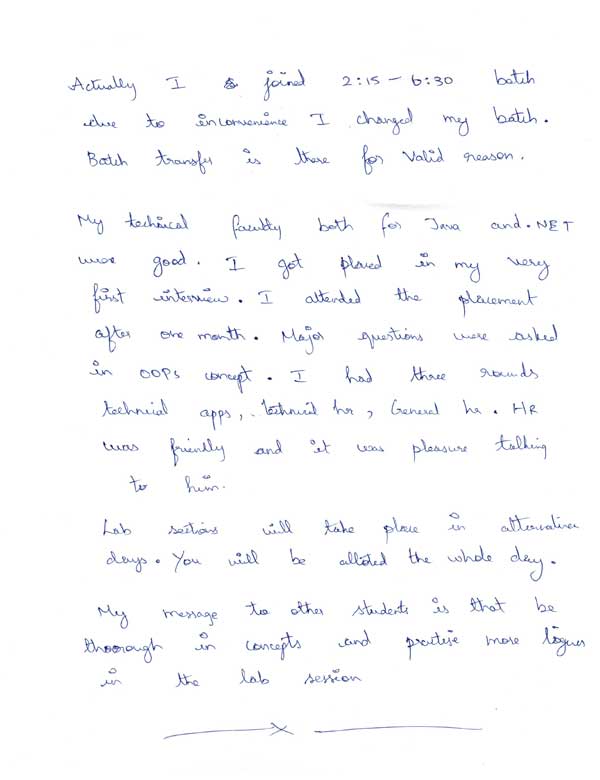 Actually I joined 2:15 - 6:30 batch
due to inconvenience I changed my batch.
Batch transfy is there for valid reason.
My technical faculty both for Java and .NET
were good. I got placed in my very
first interview. I attended the placement
after one month. Major questions were asked
in OOPs concept. I had three rounds
technical apps, technical hr, General hr. HR
was friendly and it was pleasure talking
to him.
Lab sections will take place in alternative
days. You will be alloted the whole day.
My message to other students is that be
thoorough in concepts and practise more
in the lab session